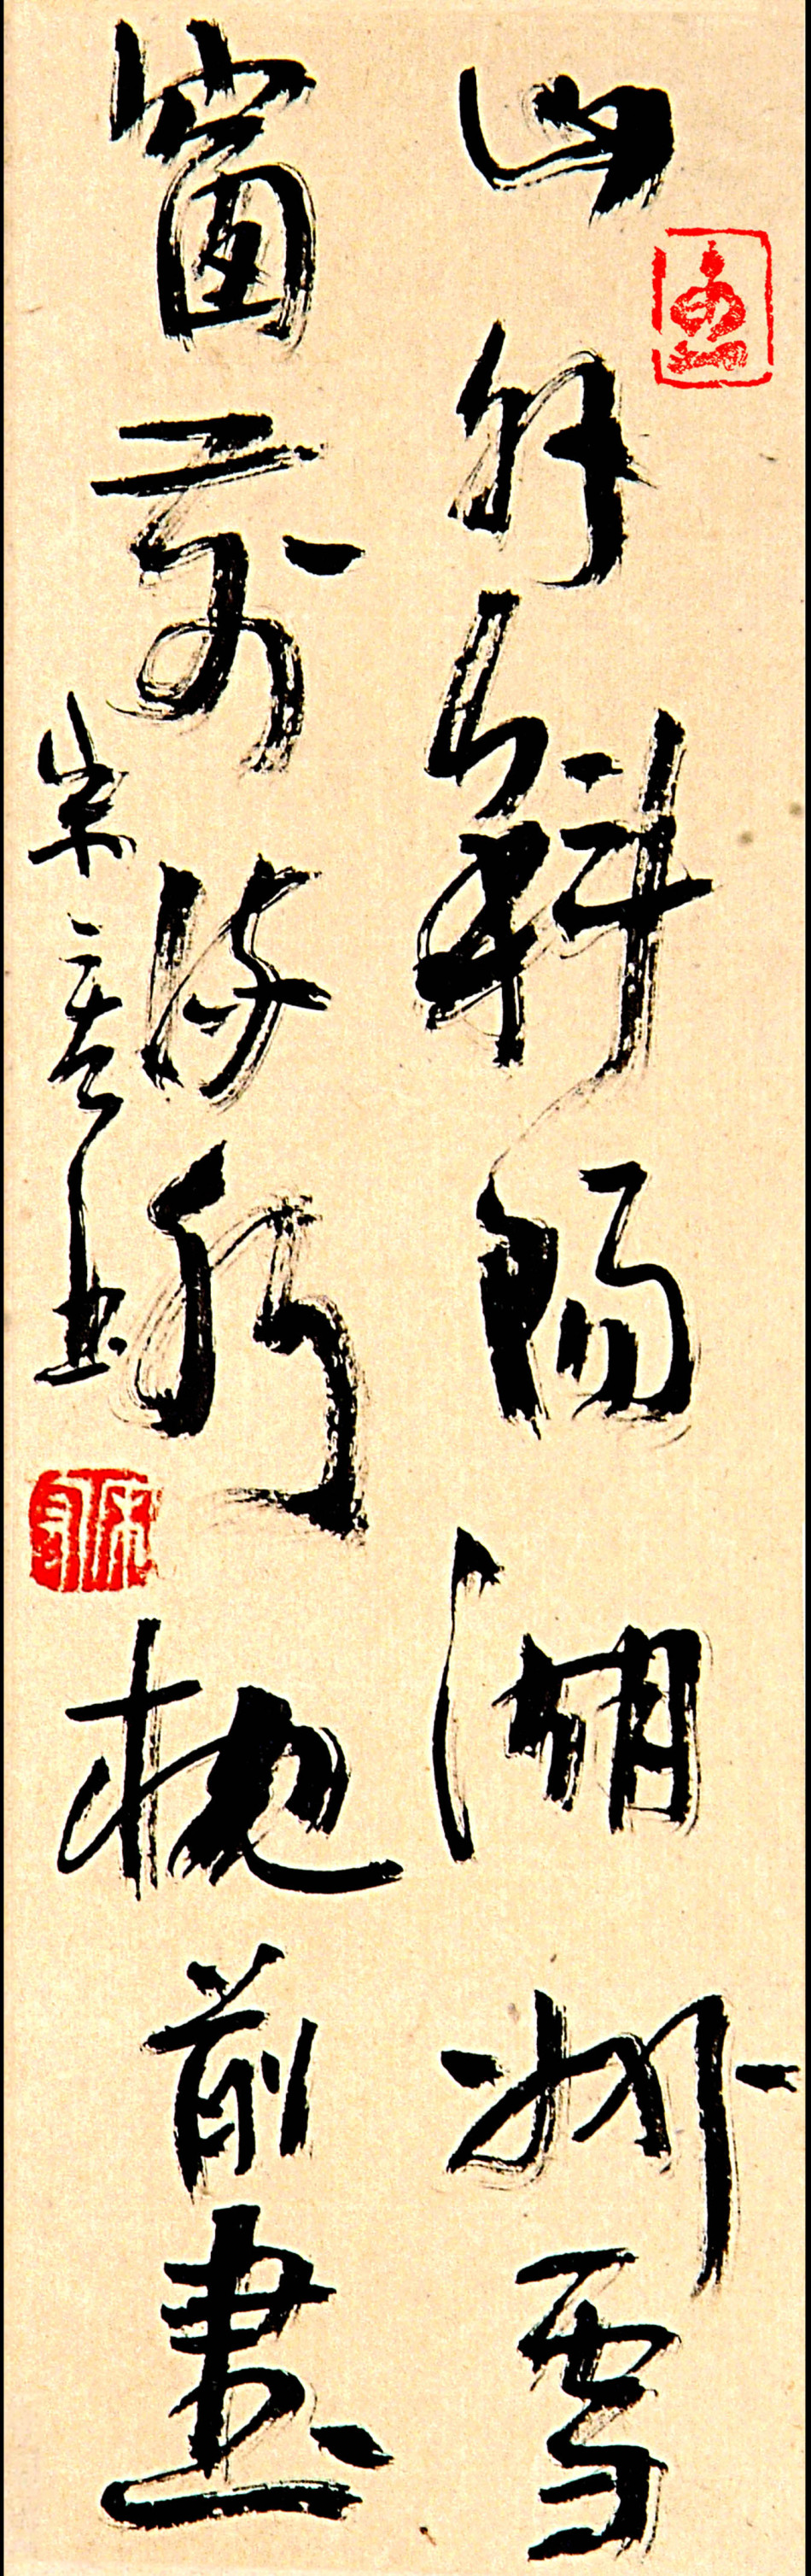 山外斜陽湖外雪
窗前流水枕前書